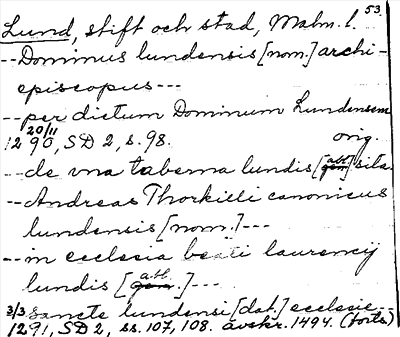 53.
Lund, stift och stad, Malm. l.
--Dominus lundensis [nom.] archi-
episcopus---
--per dictum Dominum Lundensem
20/11 1290, SD 2, s. 98. orig.
--de vna taberna lundis [abl.] sita
--Andreas Thorkilli canonicus
lundensis [nom.]---
--in ecclesia beati laurencij
lundis [abl.]---
3/3 Sancte lundensi [dat.] ecclesie--
1291, SD 2, ss. 107, 108. avskr. 1494. (forts.)